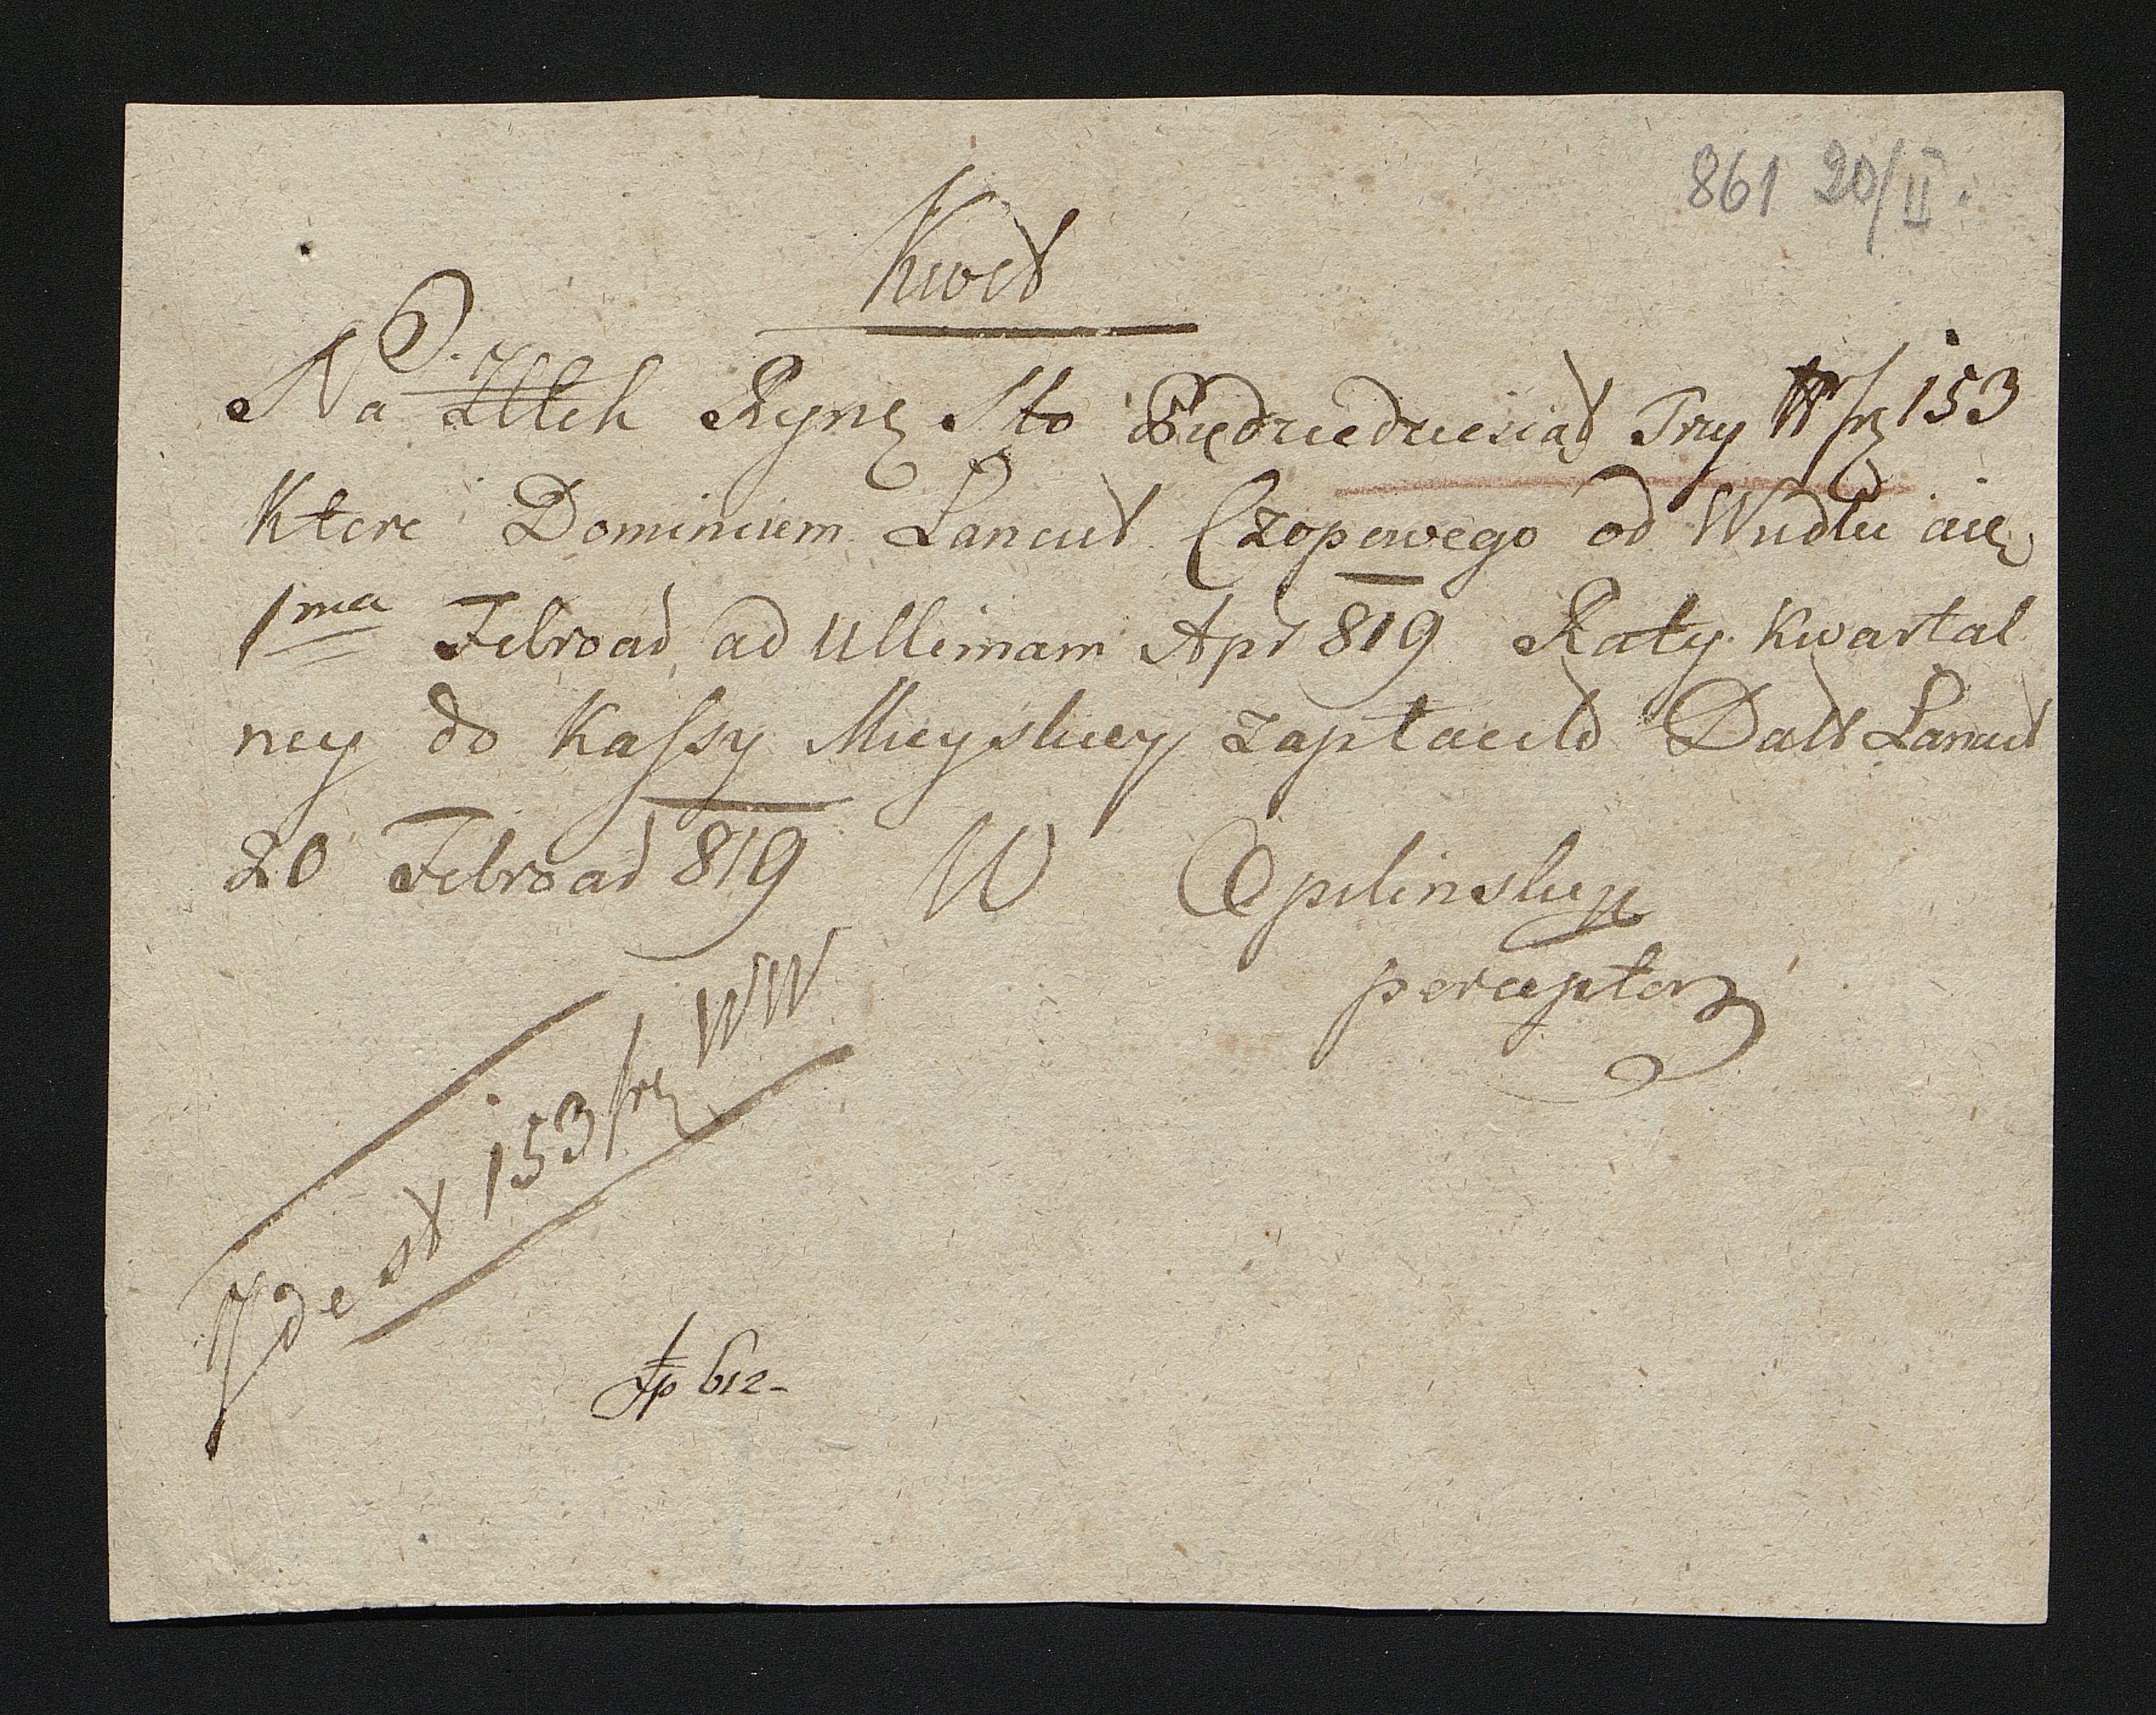 861 20/II.
Kwit
Na Złłch Ryńs Sto Piędziedziesiąt Trzy fr 153
Ktere Dominium Łancut Czopowego od Wudki
1ma Febroar ad Ultimam Apr 819 Raty Kwartal
ney do Kassy Mieyskiey zapłaciło Datt Łancut
20 Febroar 819 W Opilinskyp
perceptor
Idest 153 fr WW
fp 612-